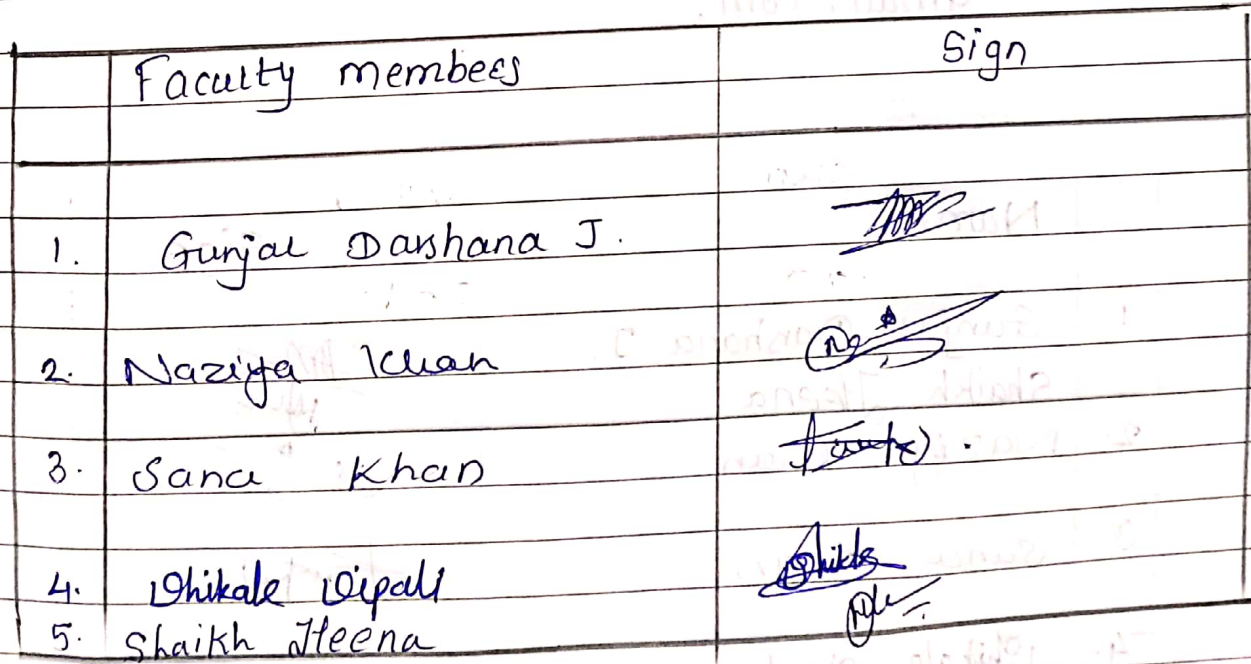 Faculty members Sign
1. Gunjal Darshana J.
2. Naziya Khan
3. Sana Khan
4. Dhikale Dipali
5. Shaikh Heena